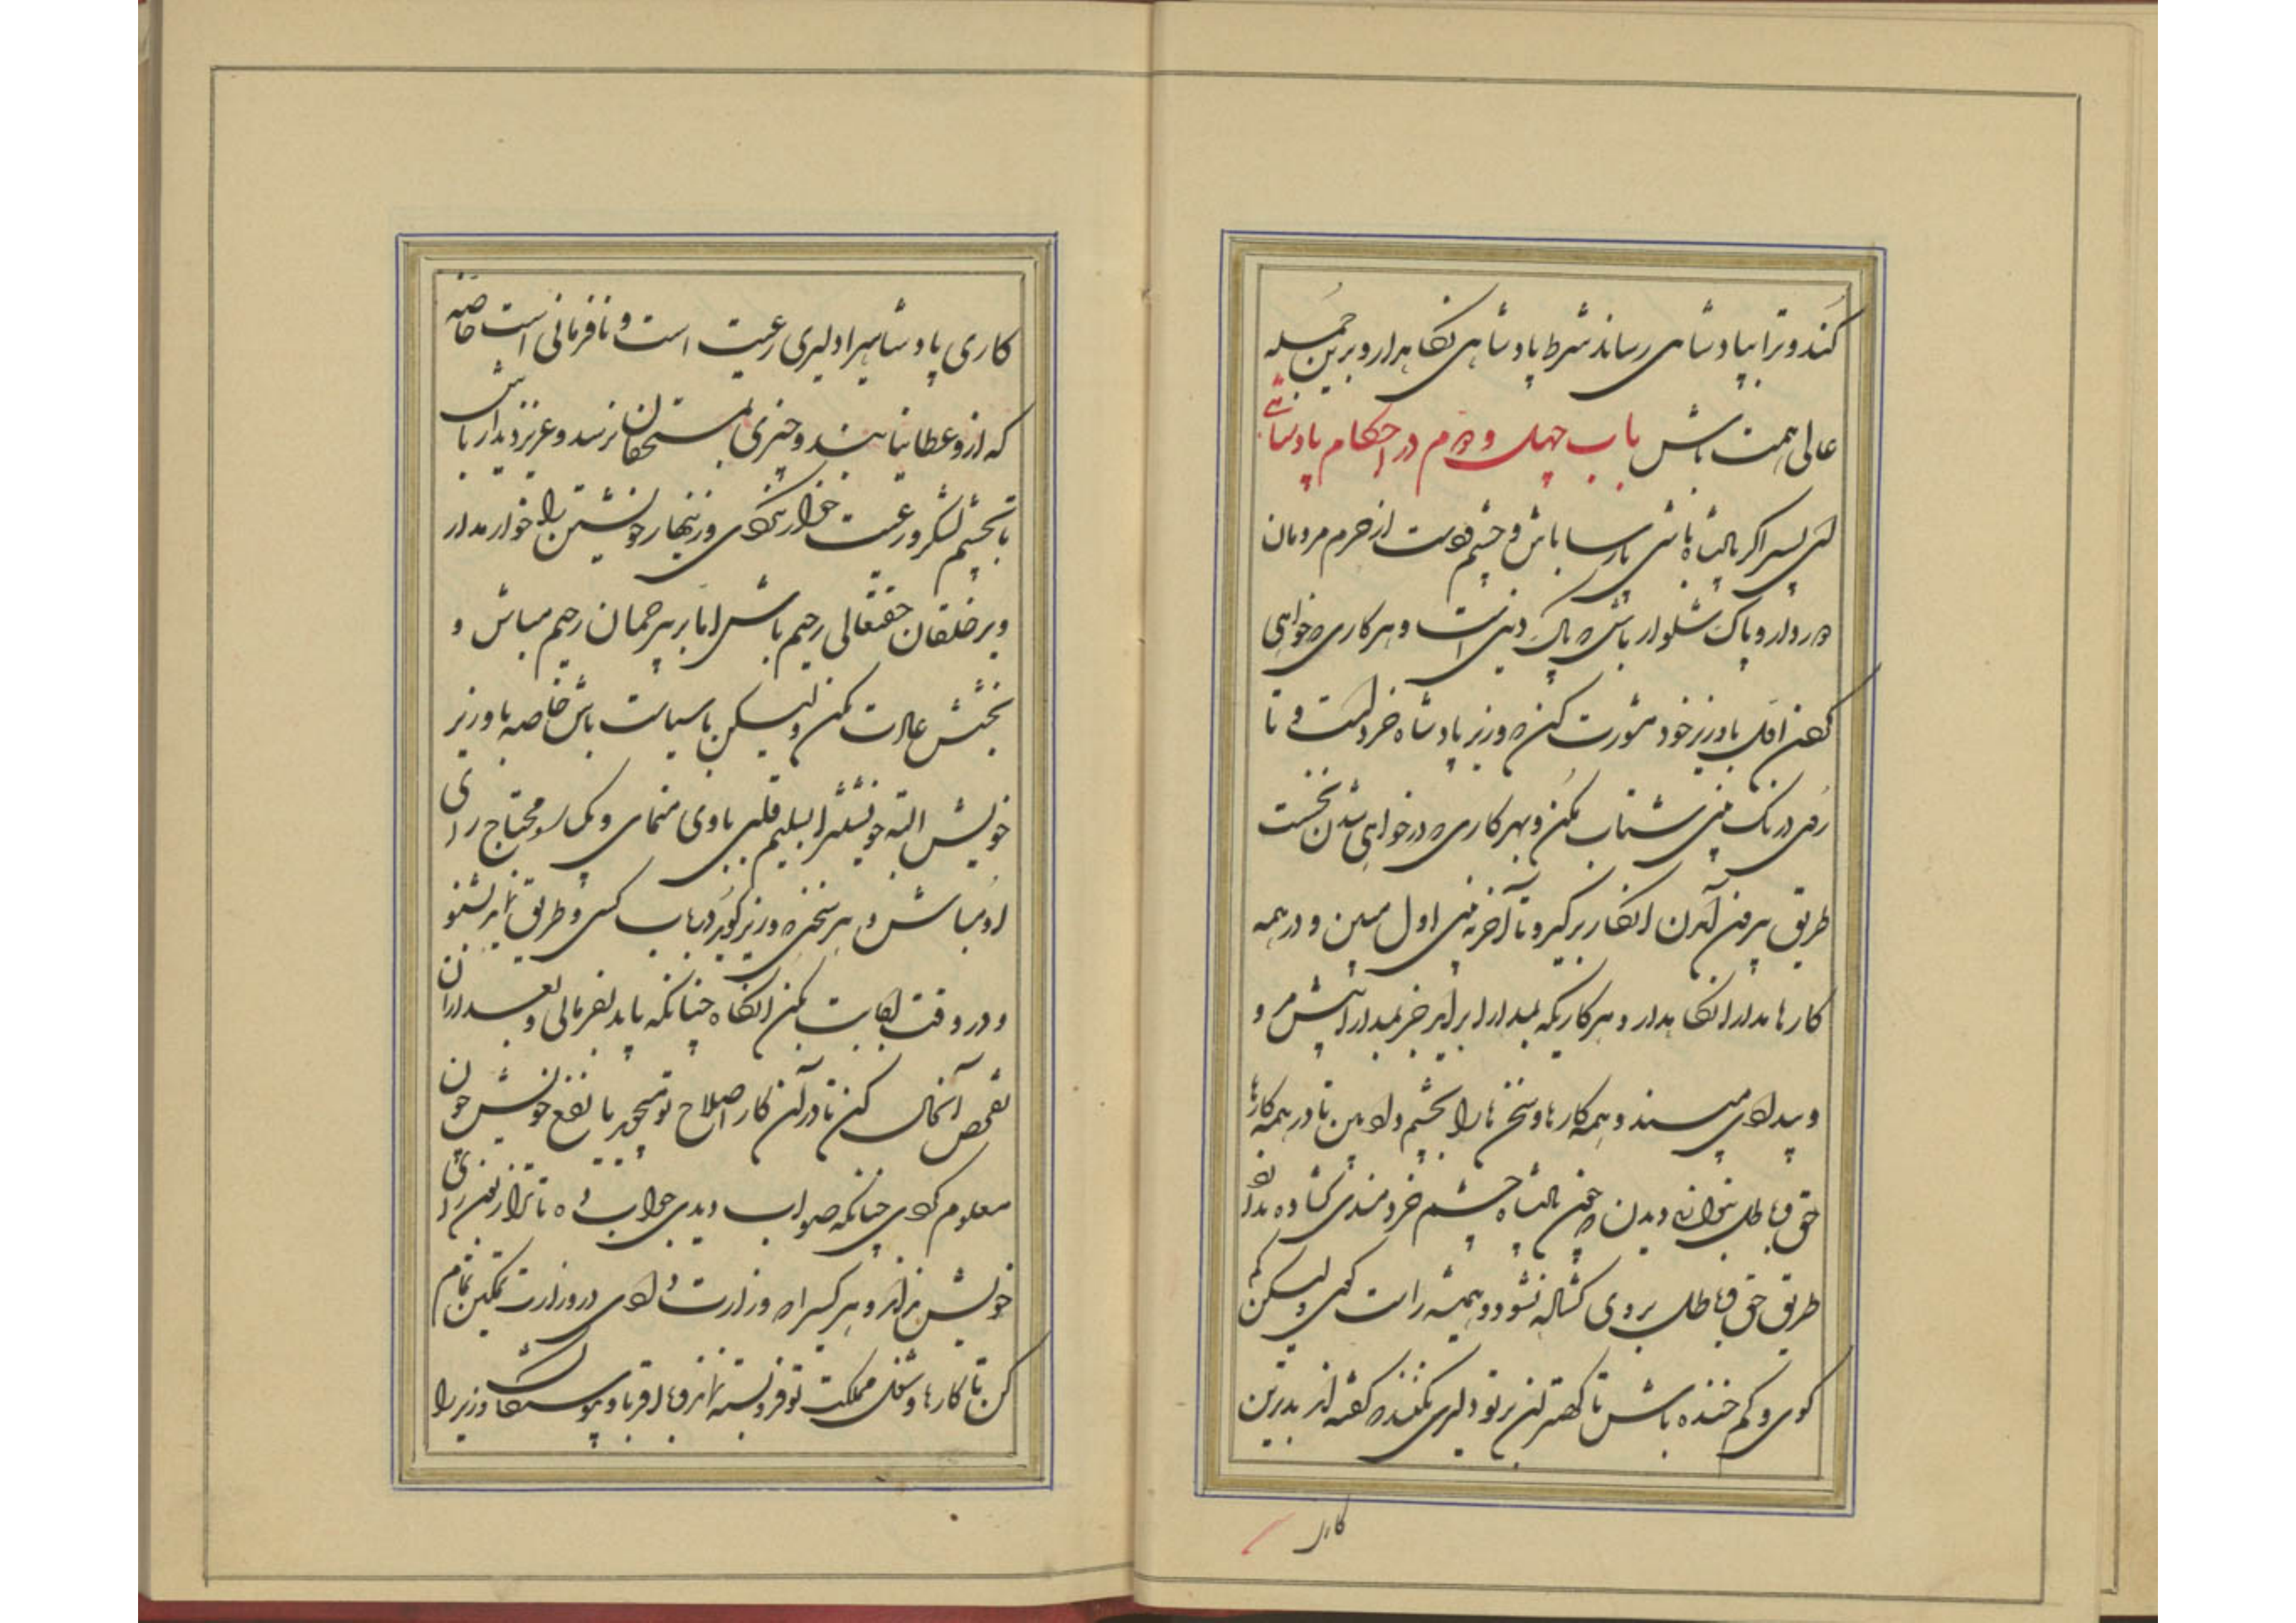 کند و ترا بپادشاهی رساند شرط پادشاهی نگاهدار و برین جمله
عالی همت باش باب چهل و دوم در احکام پادشاهی
ای پسر اگر پادشاه باشی پارسا باش و چشم و دست از حرم مردمان
دور دار و پاک شلوار باش که پاک دینی است و هر کاری که خواهی
کردن اول با وزیر خود مشورت کن که وزیر پادشاه خرد است و تا
روی درنگ بینی شتاب مکن و بهر کاری که در خواهی شدن نخست
طریق بیرون آمدن انکار برگیر و تا آخر نه بینی اول مبین و در همه
کارها مدارا نگاهدار و هر کاریکه بمدارا برآید جز بمدارا پیش مبر و
و بیدادی مپسند و همه کارها و سخن ها را بچشم داد بین تا در همه کارها
حق و باطل بتوانی دیدن که چون پادشاه چشم خردمندی گشاده ندارد
طریق حق و باطل بر وی گشاده نشود و همیشه راست گوی و لیکن کم
گوی و کم خنده باش تا کهتران بر تو دلیری نکنند که گفته اند بدترین
کار
کاری پادشاهیرا دلیری رعیت است و نافرمانی است خاصه
که ازو عطا بیابند و چیزی بمستحقان نرسد و عزیز دیدار باش
تا بچشم لشکر و رعیت خوار نگردی و زینهار خویشتن را خوار مدار
و بر خلقان حقتعالی رحیم باش اما بر بیرحمان رحیم مباش و
بخشش عادت مکن ولیکن با سیاست باش خاصه با وزیر
خویش البته خویشتنرا بسلیم قلبی با وی منمای و یکباره محتاج رای
او مباش و هر سخنی که وزیر گوید در باب کسی و طریقی نماید بشنو
و در وقت اجابت مکن انگاه چنانکه باید بفرمائی و بعد از آن
تفحص آنحال کن تا در آن کار اصلاح تو میجوید یا نفع خویش چون
معلوم کردی چنانکه صواب دیدی جواب ده تا ترا زبون رای
خویش نداند و هر کسی را که وزارت دادی در وزارت تمکین تمام
کن تا کارها و شغل مملکت تو فروبسته نماند و با اقربا و پیوستگان وزیر را